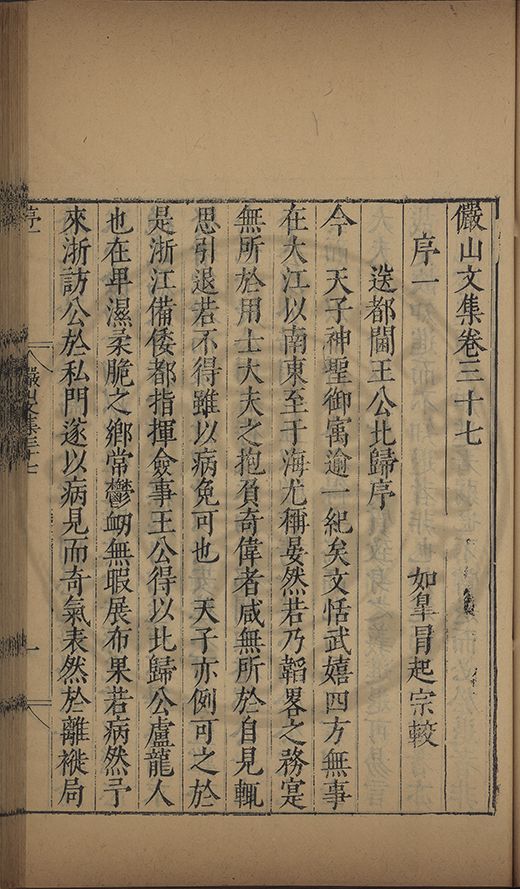 儼山文集卷三十七
序一
如臯冒起宗較
送都閫王公北歸序
今　天子神聖御寓逾一紀矣文恬武嬉四方無事
在大江以南東至于海尤稱晏然若乃韜畧之務寔
無所於用士大夫之抱負奇偉者咸無所於自見輒
思引退若不得雖以病免可也　天子亦例可之於
是浙江備倭都指揮僉事王公得以北歸公盧龍人
也在卑濕柔脆之鄉常鬱䘐無暇展布果若病然予
來浙訪公於私門遂以病見而奇氣表然於離褷局
儼山文集三十七
一